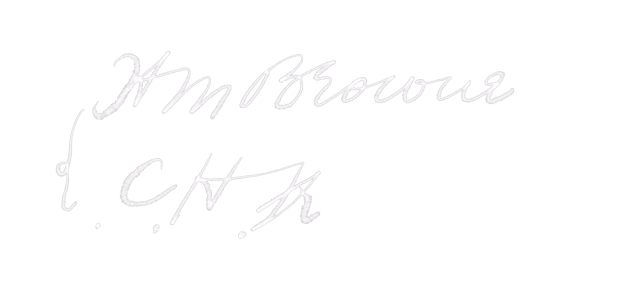 HM Browne
C.H.K